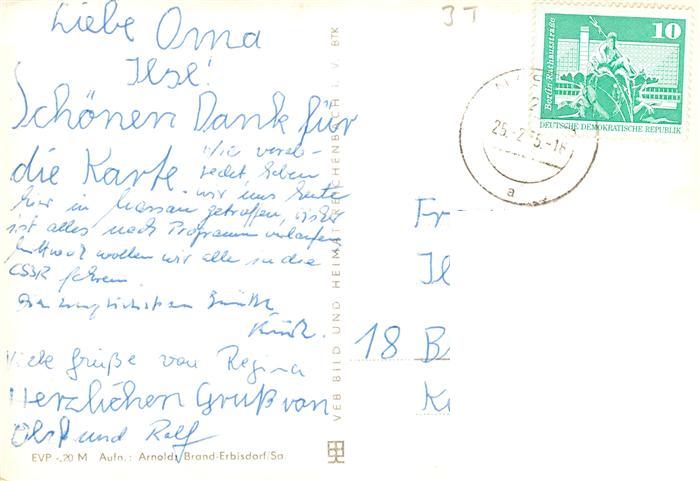 Liebe Oma
Ilse!
Schönen Dank für
die Karte. Wie verab-
redet haben
wir uns heute
hier in Nassau getroffen, bisher
ist alles nach Programm verlaufen
Mittwoch wollen wir alle in die
ČSSR fahren.
Grüße
Viele Grüße von Regina
Herzlichen Gruß von
und Ralf
EVP -,20 M Aufn.: Arnold, Brand-Erbisdorf/Sa
VEB BILD UND HEIMAT REICHENBACH I. V. BTK
3T
10
Berlin-Rathausstraße
DEUTSCHE DEMOKRATISCHE REPUBLIK
25.-2.75.-18
a
Fr
Il
18 B
K